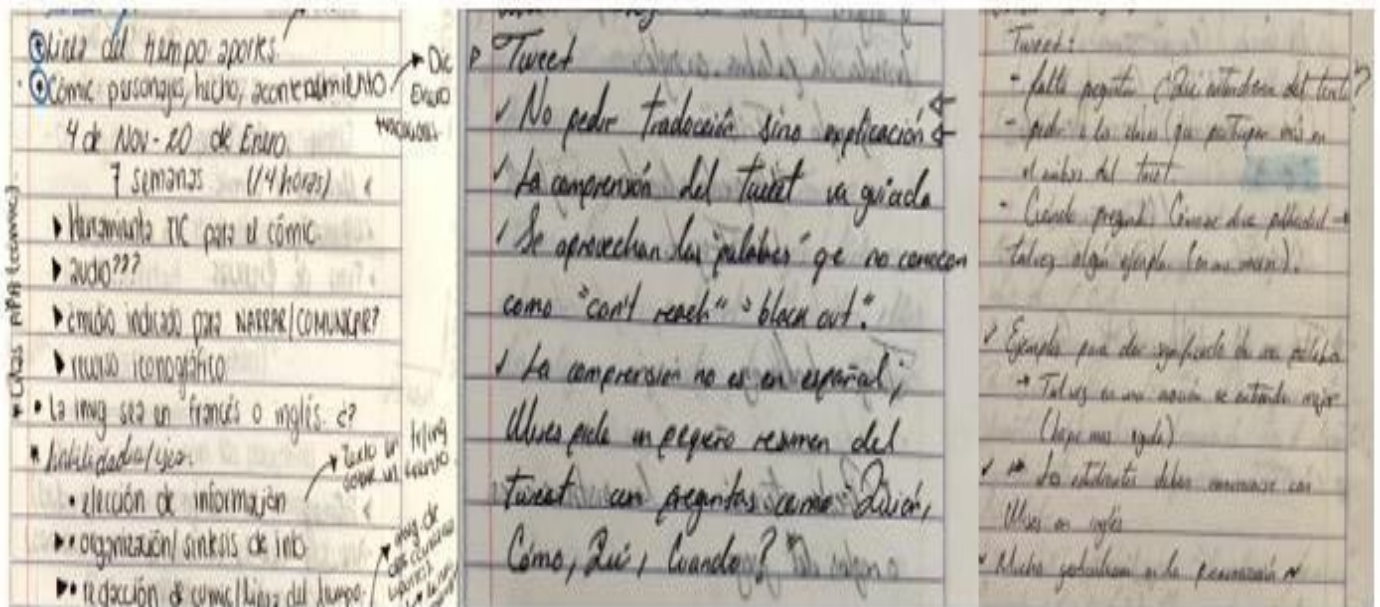 Línea del tiempo aportes.
Cómic personajes, hecho, acontecimiento
Dic
Enero
4 de Nov - 20 de Enero
7 semanas (14 horas)
Herramienta TIC para el cómic
audio???
¿medio indicado para NARRAR/COMUNICAR?
recurso iconográfico
La inv sea en francés o inglés. ¿?
habilidades/ejes.
elección de información
organización/síntesis de info
redacción de comic/línea del tiempo.
Tweet
No pedir traducción sino explicación
La comprensión del tweet va guiada
Se aprovechan las "palabras" qe no conocen
como "can't reach" "black out".
La comprensión no es en español;
Ulises pide un pequeño resumen del
tweet con preguntas como Quién,
Cómo, Qué, Cuando?
Tweet:
- falta preguntar ¿Qué entendieron del texto?
- pedir a la clase que participen más en
el del tweet.
- Cuando preguntó Cómo se dice publicidad →
talvez algún ejemplo.
Ejemplo para dar significado de una palabra
→ Talvez en una oración se entienda mejor
Los estudiantes deben comunicarse con
Ulises en inglés
Mucha en la